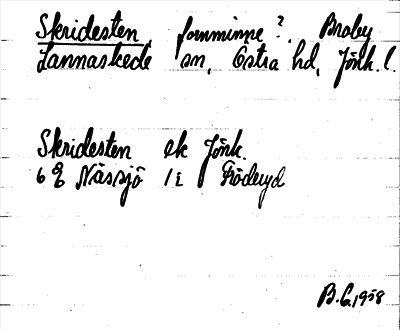 Skridesten, fornminne?. Braby
Lannaskede sn, Östra hd, Jönk. l.
Skridesten ek Jönk.
6 g Nässjö 1 i Fröderyd
B. G. 1958